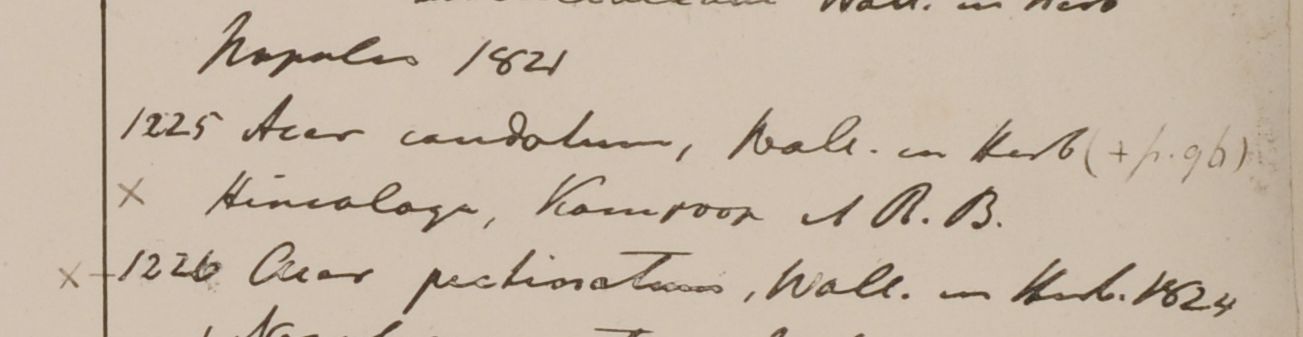 Wall. in Herb
Napalia 1821
1225 Acer caudatum, Wall. in Herb (+p.96)
x Himalaya, Kamroop et R. B.
x 1226 Acer pectinatum, Wall. in Herb. 1824